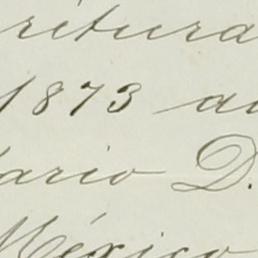 ritura
1873 au
ario D.
México